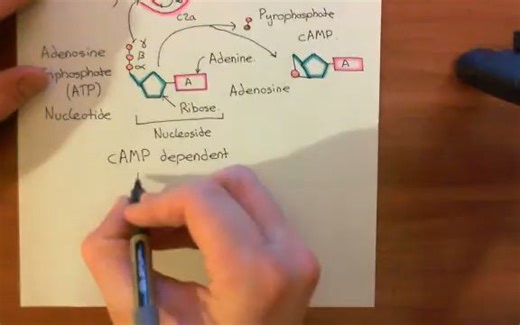 C2a
Pyrophosphate
cAMP.
γ
β
α
Adenosine
(ATP)
Nucleotide
A
Adenine.
Adenosine
A
Ribose.
Nucleoside
cAMP dependent